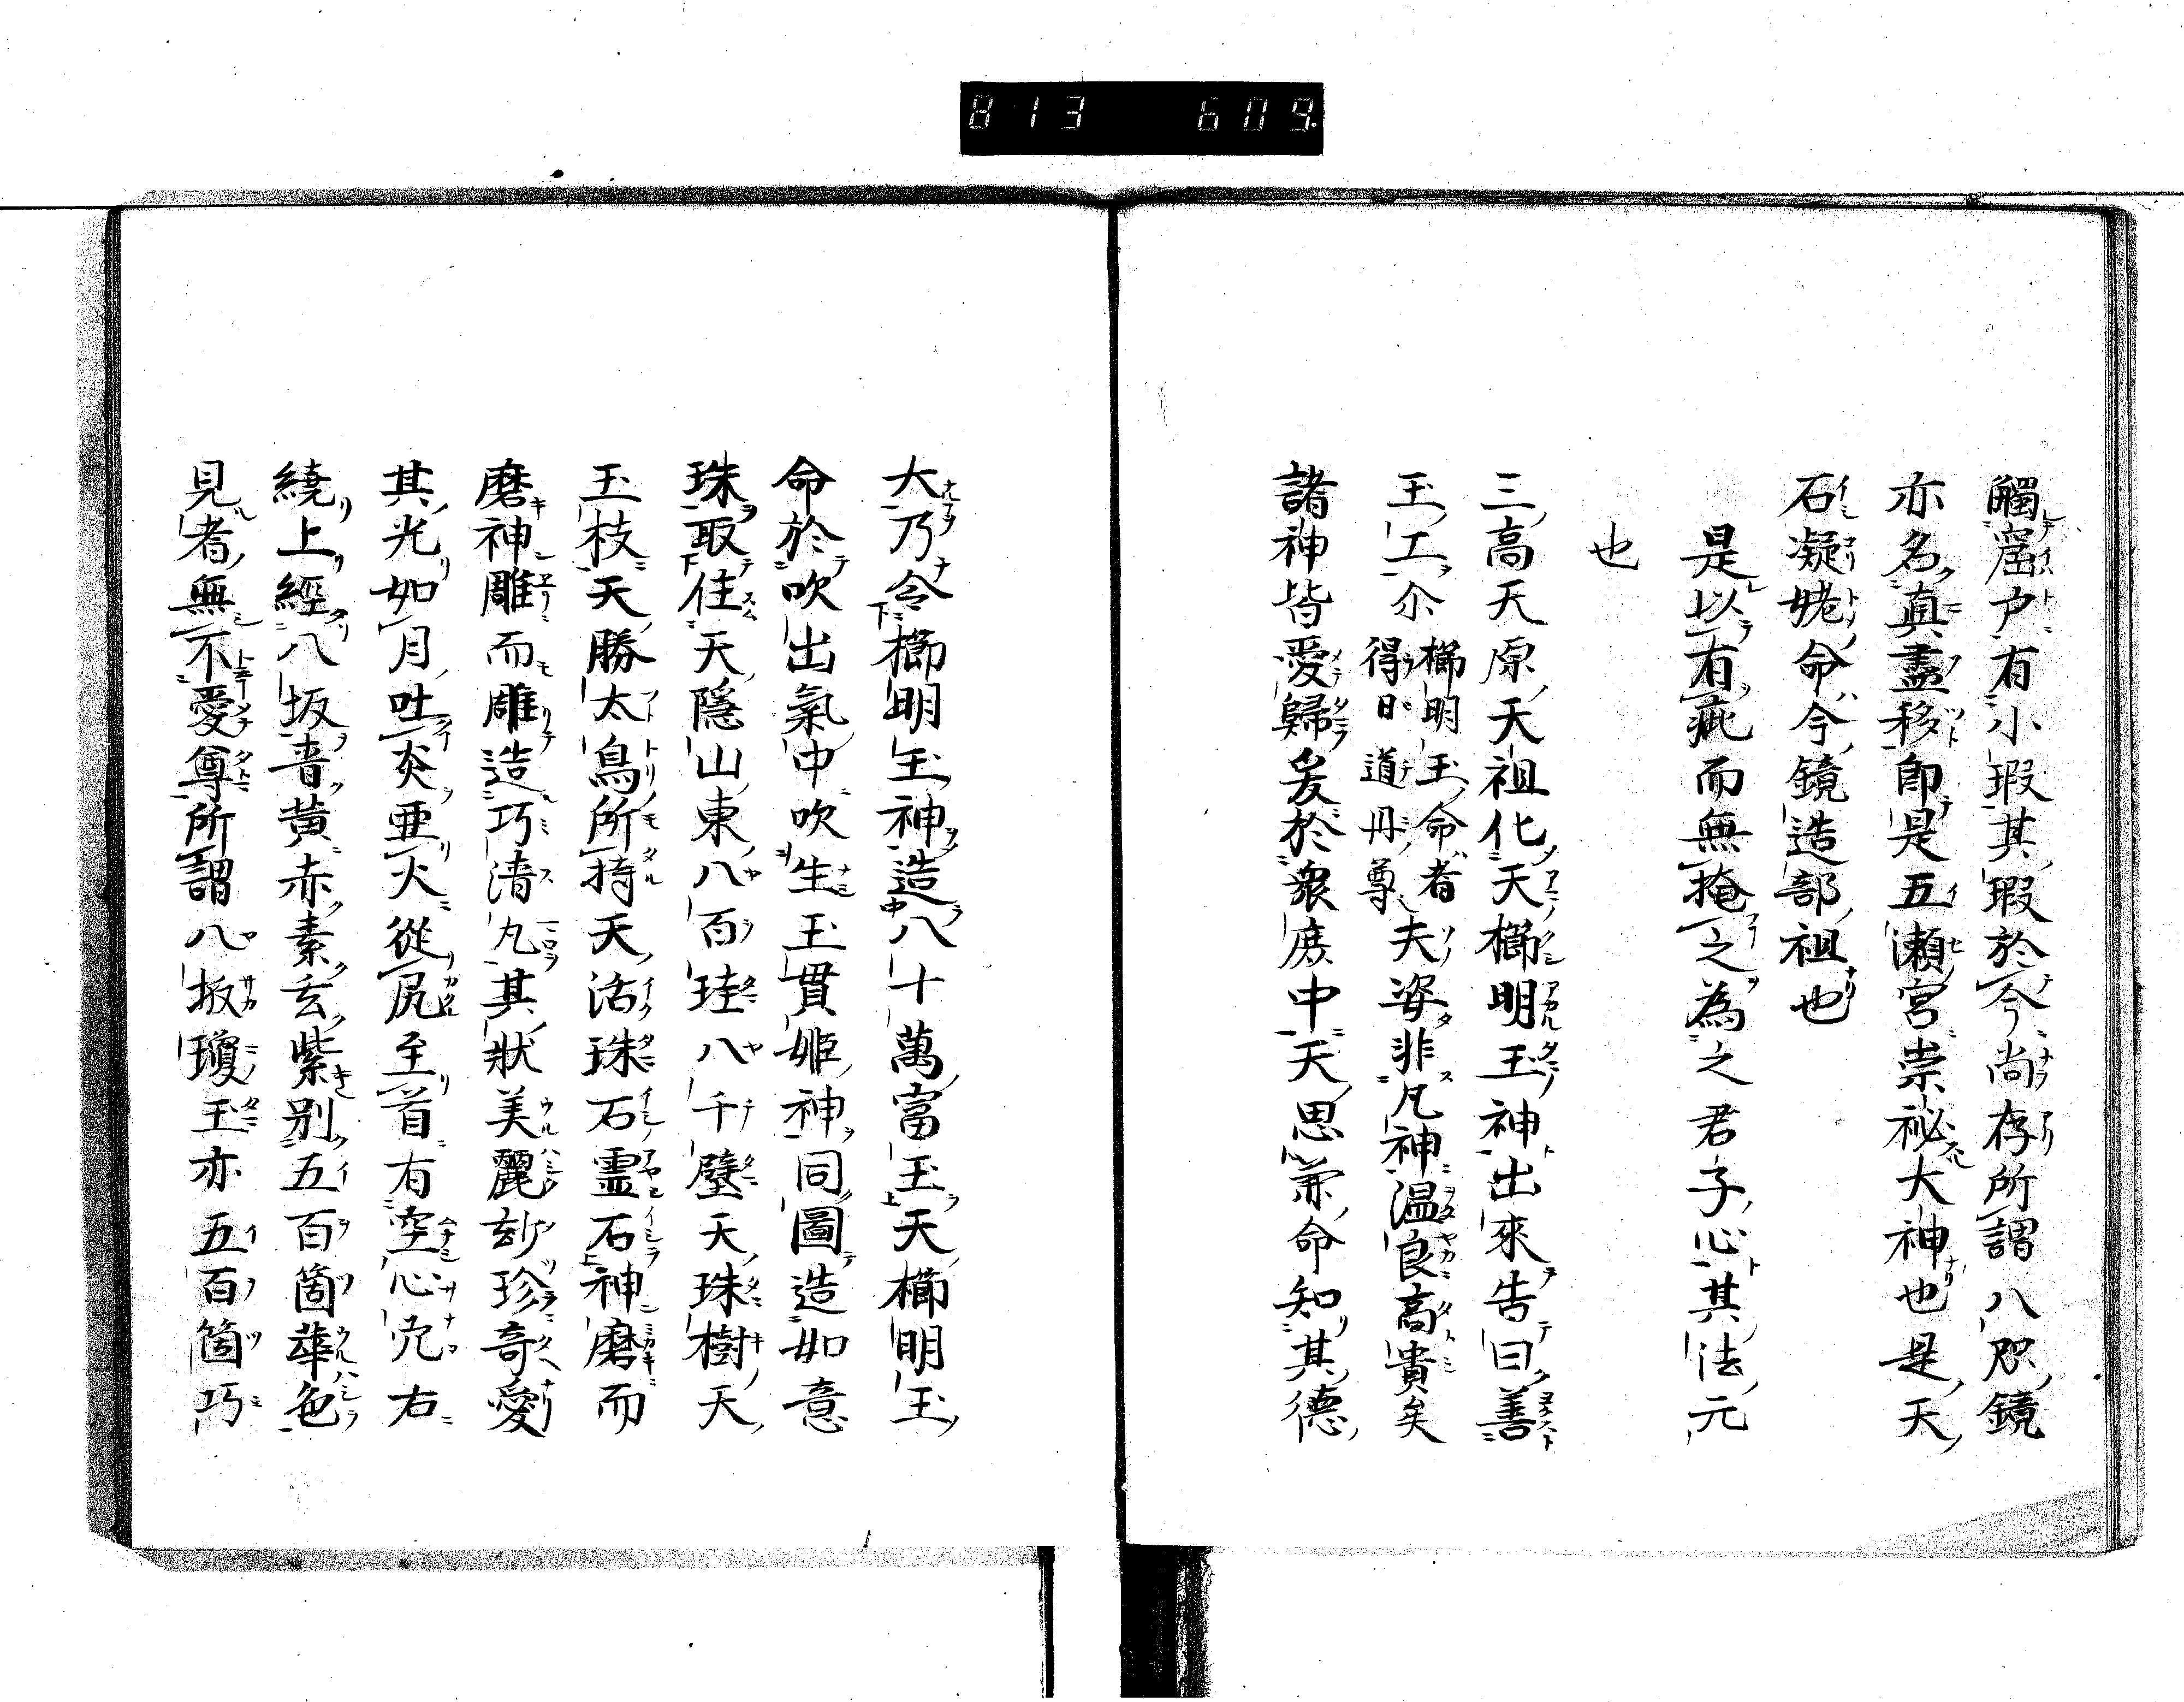 813 609
觸窟戸有小瑕其瑕於今尚存所謂八咫鏡
亦名真盡移即是五瀬宮崇祕大神也是天
石凝姥命今鏡造部祖也
是以有疵而無掩之為之君子心其法元
也
三高天原天祖化天櫛明玉神出來告曰善
玉工尒櫛明玉命者得日道丹尊夫姿非凡神温良高貴矣
諸神皆愛歸爰於衆庶中天思兼命知其德
大乃令櫛明玉神造八十萬富玉天櫛明玉
命於吹出氣中吹生玉貫姫神同圖造如意
珠取住天隱山東八百珪八千璧天珠樹天
玉枝天勝太鳥所持天活珠石霊石神磨而
磨神雕而雕造巧清丸其狀美麗玅珍奇愛
其光如月吐炎亜火從尻至首有空心穴右
繞上經八坂音黄赤素玄紫別五百箇華色
見者無不愛尊所謂八坂瓊玉亦五百箇巧